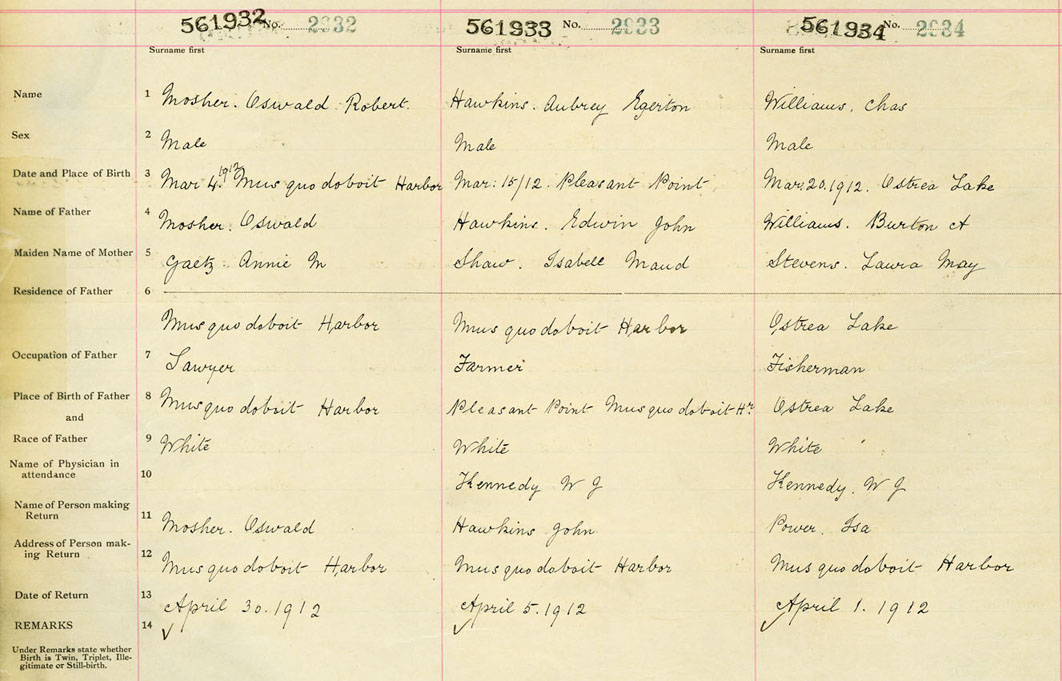 561932 No. 2932 561933 No. 2933 561934 No. 2934
Surname first Surname first Surname first
Name 1 Mosher. Oswald Robert. Hawkins. Aubrey Egerton Williams, Chas
Sex 2 Male Male Male
Date and Place of Birth 3 Mar 4. 1912 Musquodoboit Harbor Mar: 15/12. Pleasant Point Mar. 20. 1912. Ostrea Lake
Name of Father 4 Mosher. Oswald Hawkins. Edwin John Williams. Burton A
Maiden Name of Mother 5 Gaetz Annie M Shaw. Isabell Maud Stevens. Laura May
Residence of Father 6
Musquodoboit Harbor Musquodoboit Harbor Ostrea Lake
Occupation of Father 7 Sawyer Farmer Fisherman
Place of Birth of Father 8 Musquodoboit Harbor Pleasant Point Musquodoboit Hr. Ostrea Lake
and
Race of Father 9 White White White
Name of Physician in
attendance 10 Kennedy W J Kennedy. W J
Name of Person making
Return 11 Mosher. Oswald Hawkins John Power. Isa
Address of Person mak-
ing Return 12 Musquodoboit Harbor Musquodoboit Harbor Musquodoboit Harbor
Date of Return 13 April 30. 1912 April 5. 1912 April 1. 1912
REMARKS 14
Under Remarks state whether
Birth is Twin, Triplet, Ille-
gitimate or Still-birth.